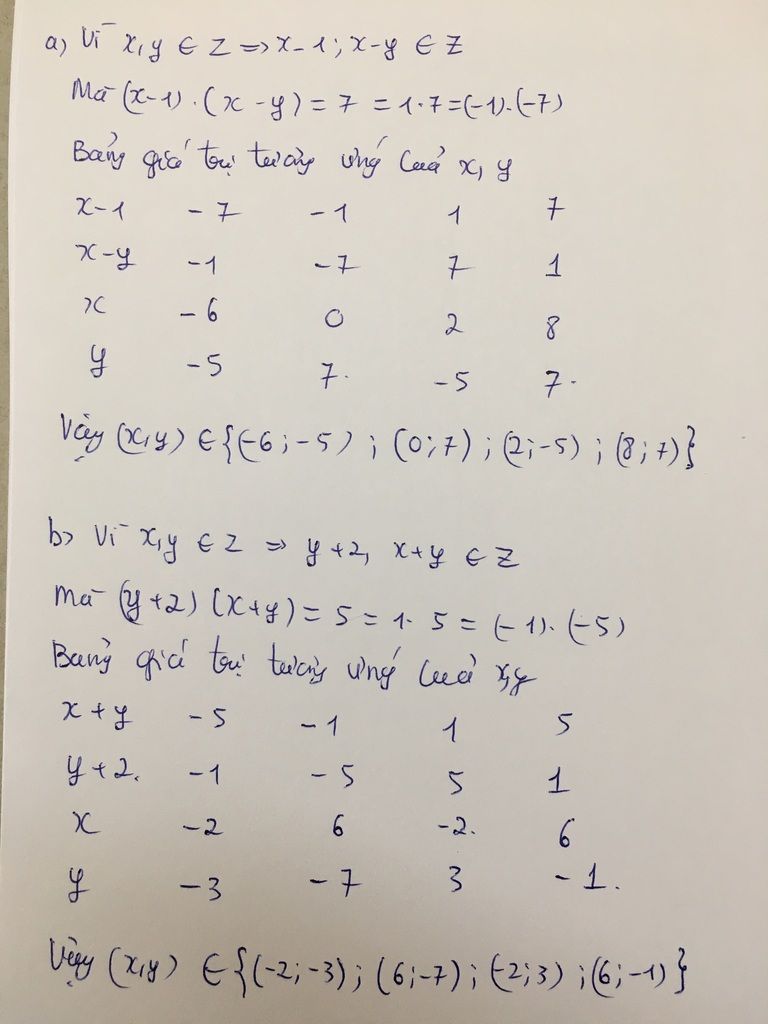 a) Vì x,y ∈ Z => x-1; x-y ∈ Z
Mà (x-1).(x-y) = 7 = 1.7 = (-1).(-7)
Bảng giá trị tương ứng của x, y
x-1 -7 -1 1 7
x-y -1 -7 7 1
x -6 0 2 8
y -5 7. -5 7.
Vậy (x,y) ∈ {(-6;-5); (0;7); (2;-5); (8;7)}
b) Vì x,y ∈ Z => y+2, x+y ∈ Z
Mà (y+2)(x+y) = 5 = 1.5 = (-1).(-5)
Bảng giá trị tương ứng của x,y
x+y -5 -1 1 5
y+2. -1 -5 5 1
x -2 6 -2. 6
y -3 -7 3 -1.
Vậy (x,y) ∈ {(-2;-3); (6;-7); (-2;3); (6;-1)}